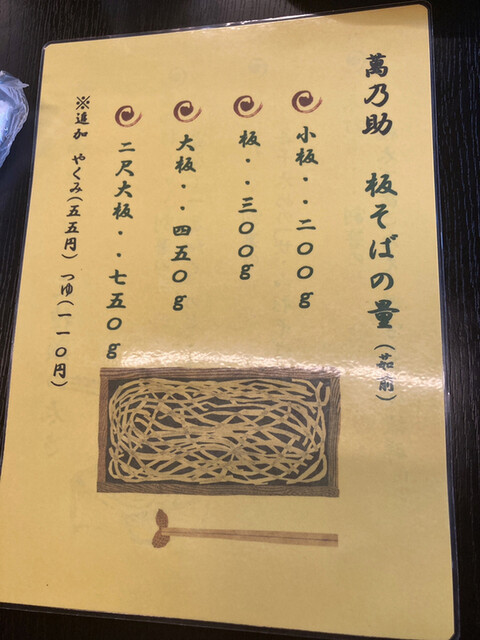 萬乃助 板そばの量(茹前)
小板・・二〇〇g
板・・三〇〇g
大板・・四五〇g
二尺大板・・七五〇g
※追加 やくみ(五五円) つゆ(一一〇円)